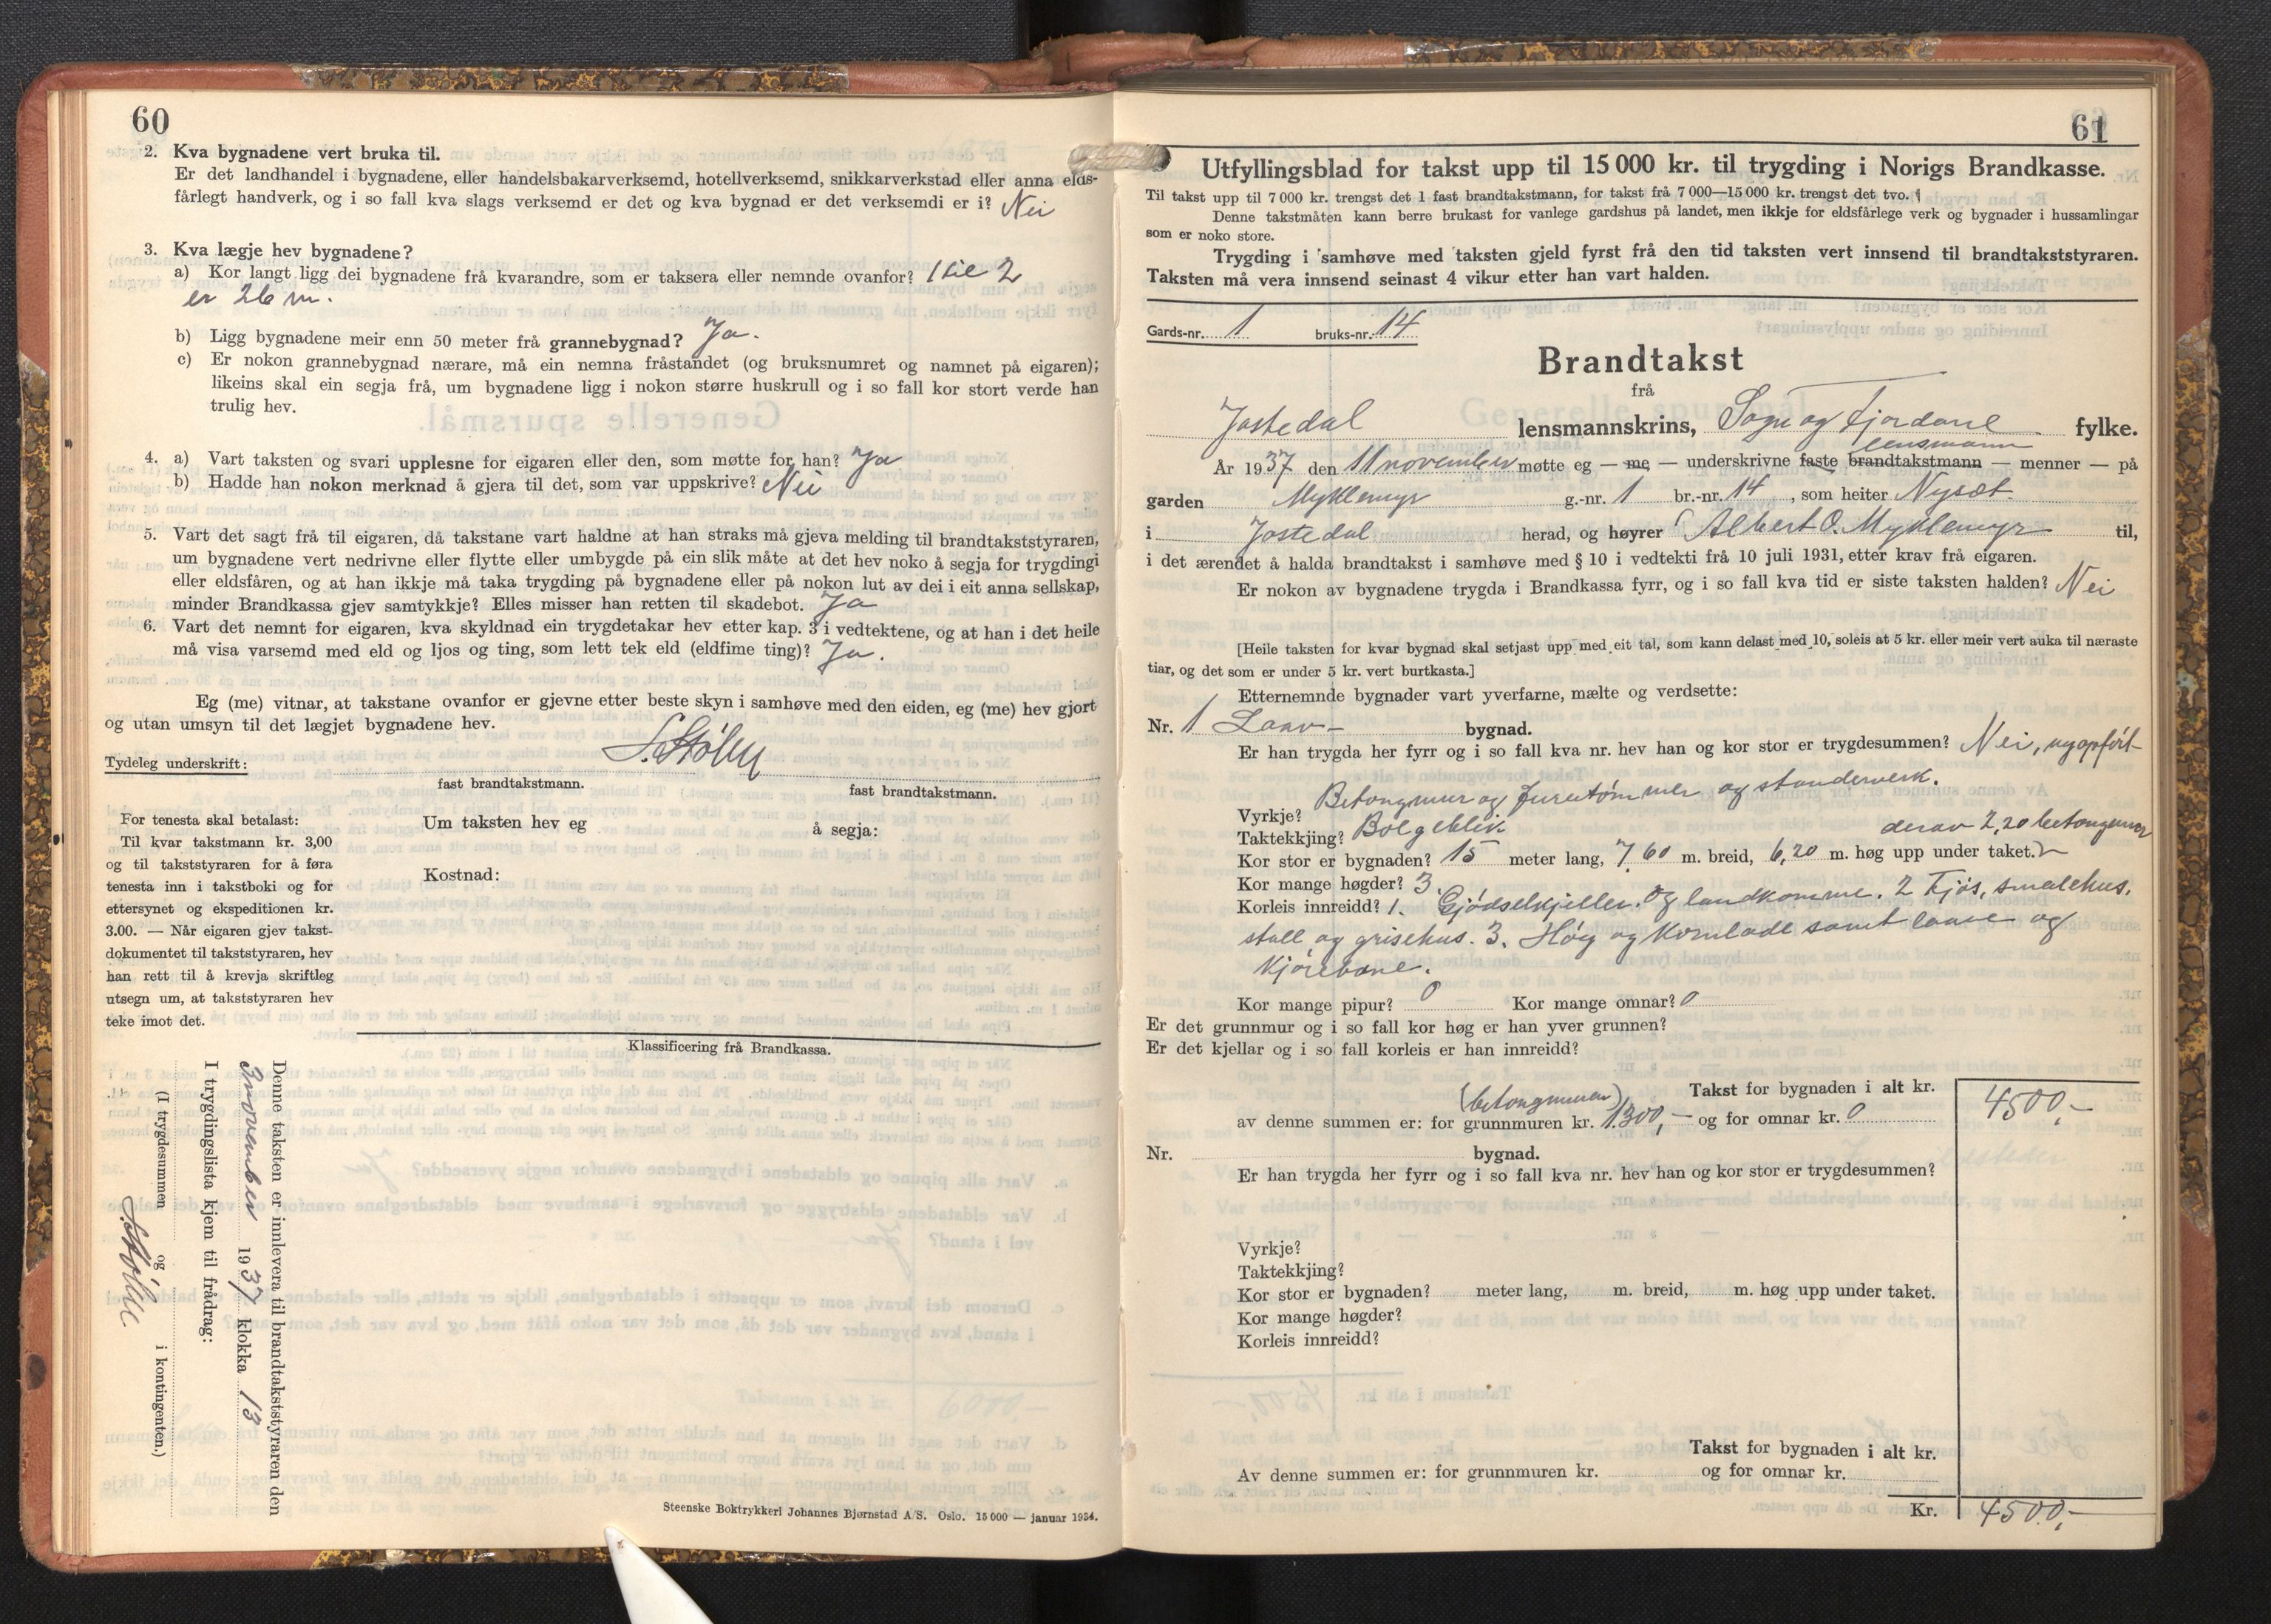 60
2. Kva bygnadene vert bruka til.
Er det landhandel i bygnadene, eller handelsbakarverksemd, hotellverksemd, snikkarverkstad eller anna elds-
fårlegt handverk, og i so fall kva slags verksemd er det og kva bygnad er det verksemdi er i? Nei
3. Kva lægje hev bygnadene?
a) Kor langt ligg dei bygnadene frå kvarandre, som er taksera eller nemnde ovanfor? 1 til 2
er 26 m.
b) Ligg bygnadene meir enn 50 meter frå grannebygnad? Ja.
c) Er nokon grannebygnad nærare, må ein nemna fråstandet (og bruksnumret og namnet på eigaren);
likeins skal ein segja frå, um bygnadene ligg i nokon større huskrull og i so fall kor stort verde han
trulig hev.
4. a) Vart taksten og svari upplesne for eigaren eller den, som møtte for han? Ja
b) Hadde han nokon merknad å gjera til det, som var uppskrive? Nei
5. Vart det sagt frå til eigaren, då takstane vart haldne at han straks må gjeva melding til brandtakststyraren,
um bygnadene vert nedrivne eller flytte eller umbygde på ein slik måte at det hev noko å segja for trygdingi
eller eldsfåren, og at han ikkje må taka trygding på bygnadene eller på nokon lut av dei i eit anna sellskap,
minder Brandkassa gjev samtykkje? Elles misser han retten til skadebot. Ja
6. Vart det nemnt for eigaren, kva skyldnad ein trygdetakar hev etter kap. 3 i vedtektene, og at han i det heile
må visa varsemd med eld og ljos og ting, som lett tek eld (eldfime ting)? Ja.
Eg (me) vitnar, at takstane ovanfor er gjevne etter beste skyn i samhøve med den eiden, eg (me) hev gjort
og utan umsyn til det lægjet bygnadene hev.
Tydeleg underskrift: S. Stølen
fast brandtakstmann. fast brandtakstmann.
For tenesta skal betalast:
Til kvar takstmann kr. 3,00
og til takststyraren for å føra
tenesta inn i takstboki og for
ettersynet og ekspeditionen kr.
3.00. — Når eigaren gjev takst-
dokumentet til takststyraren, hev
han rett til å krevja skriftleg
utsegn um, at takststyraren hev
teke imot det.
Um taksten hev eg å segja:
Kostnad:
Klassificering frå Brandkassa.
Denne taksten er innlevera til brandtakststyraren den
3 november 1937 klokka 13
I trygdingslista kjem til frådrag:
(I trygdesummen og i kontingenten.)
S. Stølen
Steenske Boktrykkeri Johannes Bjørnstad A/S. Oslo. 15 000 — januar 1934.
61
Utfyllingsblad for takst upp til 15 000 kr. til trygding i Norigs Brandkasse.
Til takst upp til 7 000 kr. trengst det 1 fast brandtakstmann, for takst frå 7 000—15 000 kr. trengst det tvo.
Denne takstmåten kann berre brukast for vanlege gardshus på landet, men ikkje for eldsfårlege verk og bygnader i hussamlingar
som er noko store.
Trygding i samhøve med taksten gjeld fyrst frå den tid taksten vert innsend til brandtakststyraren.
Taksten må vera innsend seinast 4 vikur etter han vart halden.
Gards-nr. 1 bruks-nr. 14
Brandtakst
frå
Jostedal lensmannskrins, Sogn og Fjordane fylke.
lensmann
År 1937 den 11 november møtte eg — me — underskrivne faste brandtakstmann — menner — på
garden Myklemyr g.-nr. 1 br.-nr. 14, som heiter Nysæt
i Jostedal herad, og høyrer Albert O. Myklemyr til,
i det ærendet å halda brandtakst i samhøve med § 10 i vedtekti frå 10 juli 1931, etter krav frå eigaren.
Er nokon av bygnadene trygda i Brandkassa fyrr, og i so fall kva tid er siste taksten halden? Nei
[Heile taksten for kvar bygnad skal setjast upp med eit tal, som kann delast med 10, soleis at 5 kr. eller meir vert auka til næraste
tiar, og det som er under 5 kr. vert burtkasta.]
Etternemnde bygnader vart yverfarne, mælte og verdsette:
Nr. 1 Laav- bygnad.
Er han trygda her fyrr og i so fall kva nr. hev han og kor stor er trygdesummen? Nei, nyopført
Vyrkje? Betongmur og furutømmer og standerverk.
Taktekkjing? Bølgeblik
derav 2,20 betongmur
Kor stor er bygnaden? 15 meter lang, 7,60 m. breid, 6,20 m. høg upp under taket.
Kor mange høgder? 3
Korleis innreidd? 1. Gjødselkjeller og landkomme. 2 Fjøs, smalehus,
stall og grisehus. 3. Høy og kornlade samt laave og
kjørebane.
Kor mange pipur? 0 Kor mange omnar? 0
Er det grunnmur og i so fall kor høg er han yver grunnen?
Er det kjellar og i so fall korleis er han innreidd?
Takst for bygnaden i alt kr. 4500,-
(betongmuren)
av denne summen er: for grunnmuren kr. 1300,- og for omnar kr. 0
Nr. bygnad.
Er han trygda her fyrr og i so fall kva nr. hev han og kor stor er trygdesummen?
Vyrkje?
Taktekkjing?
Kor stor er bygnaden? meter lang, m. breid, m. høg upp under taket.
Kor mange høgder?
Korleis innreidd?
Takst for bygnaden i alt kr.
Av denne summen er: for grunnmuren kr. og for omnar kr.
Kr. 4500,-